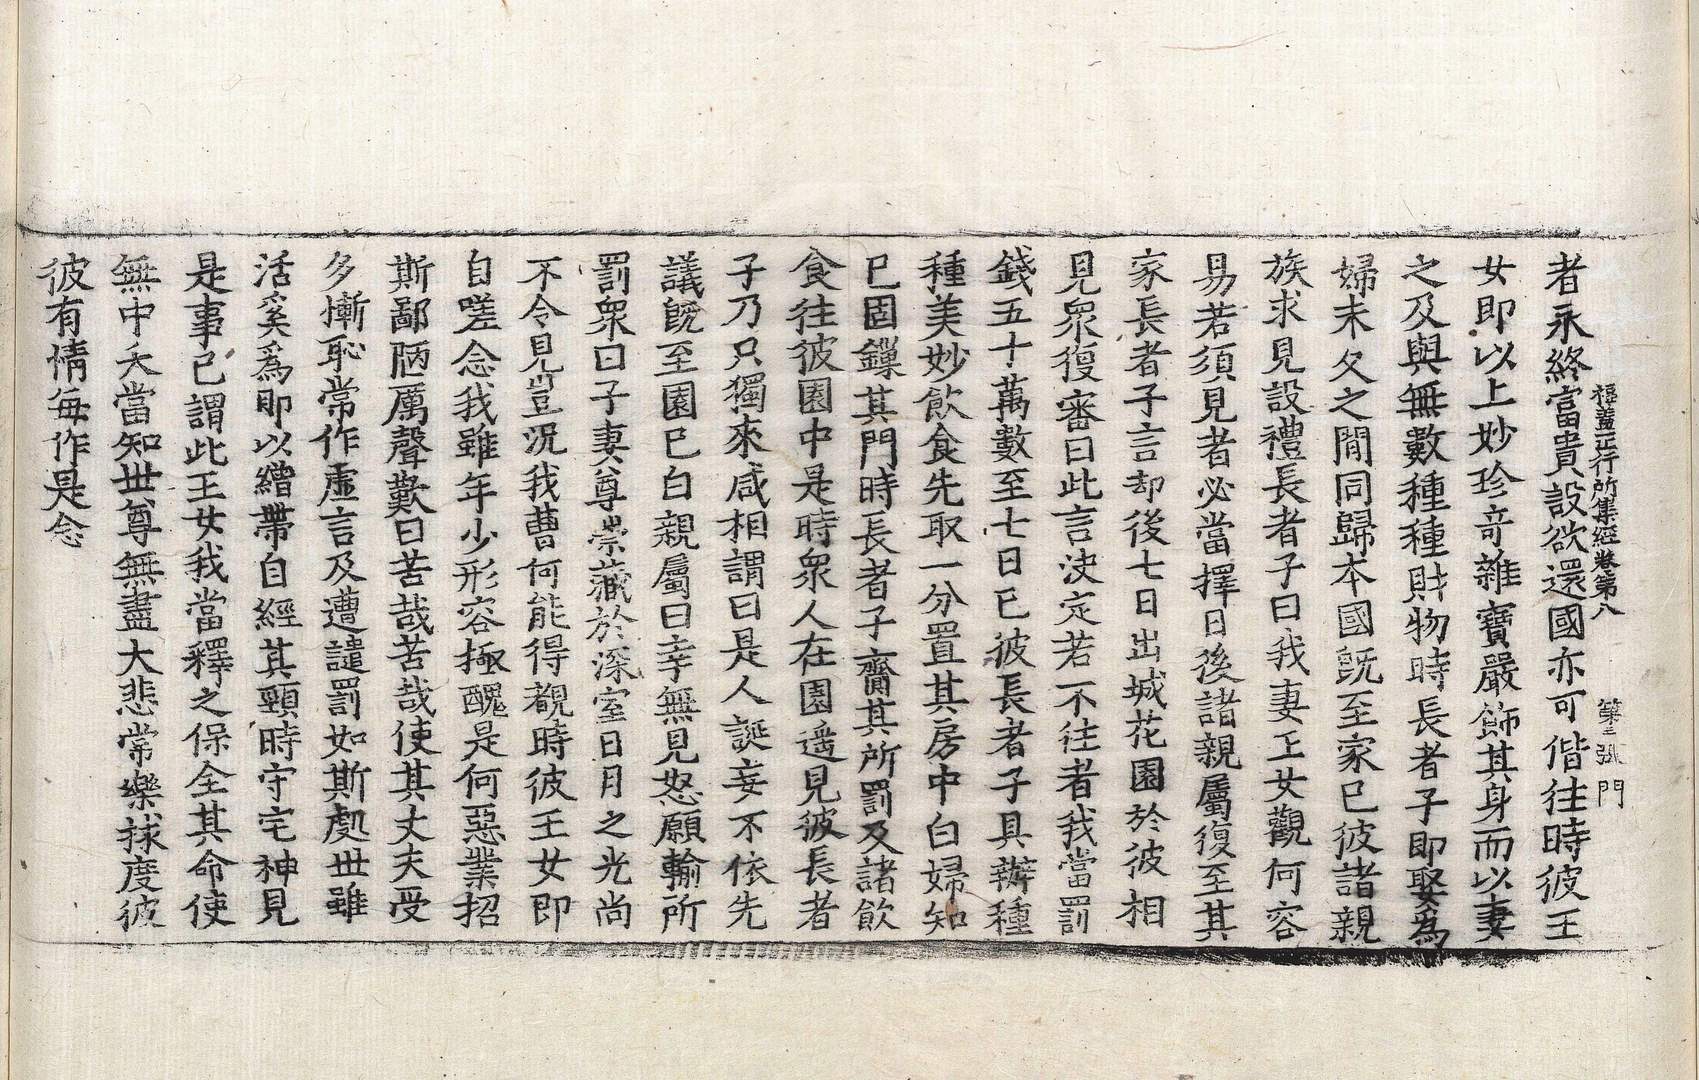 福蓋正行所集經卷第八　第三張　門
者永終富貴設欲還國亦可偕往時彼王
女即以上妙珍奇雜寶嚴飾其身而以妻
之及與無數種種財物時長者子即娶為
婦未久之閒同歸本國旣至家已彼諸親
族求見設禮長者子曰我妻王女觀何容
易若須見者必當擇日後諸親屬復至其
家長者子言却後七日出城花園於彼相
見衆復審曰此言決定若不往者我當罰
錢五十萬數至七日已彼長者子具辦種
種美妙飲食先取一分置其房中白婦知
已固鏁其門時長者子齎其所罰及諸飲
食往彼園中是時衆人在園遥見彼長者
子乃只獨來咸相謂曰是人誕妄不依先
議旣至園已白親屬曰幸無見怒願輸所
罰衆曰子妻尊崇藏於深室日月之光尚
不令見豈況我曹何能得覩時彼王女即
自嗟念我雖年少形容極醜是何惡業招
斯鄙陋厲聲歎曰苦哉苦哉使其丈夫受
多慚恥常作虛言及遭譴罰如斯處世雖
活奚為即以繒帶自經其頸時守宅神見
是事已謂此王女我當釋之保全其命使
無中夭當知世尊無盡大悲常樂救度彼
彼有情每作是念